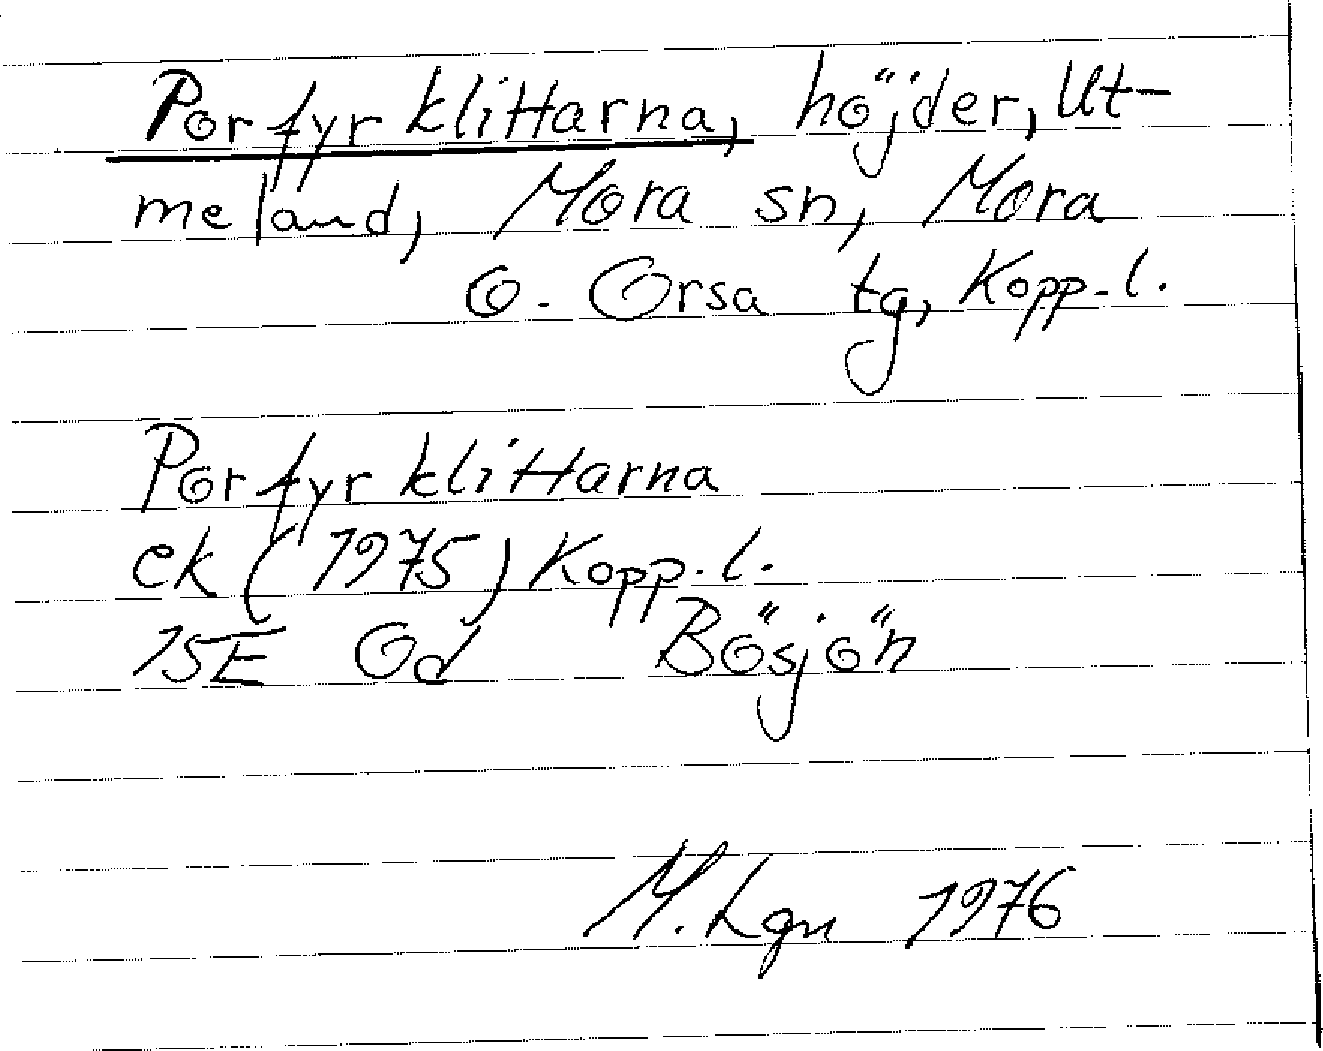 Porfyrklittarna, höjder, Ut-
meland, Mora sn, Mora
o. Orsa tg, Kopp.l.
Porfyrklittarna
ek (1975) Kopp.l.
15E 0d Bösjön
M. Lgn 1976